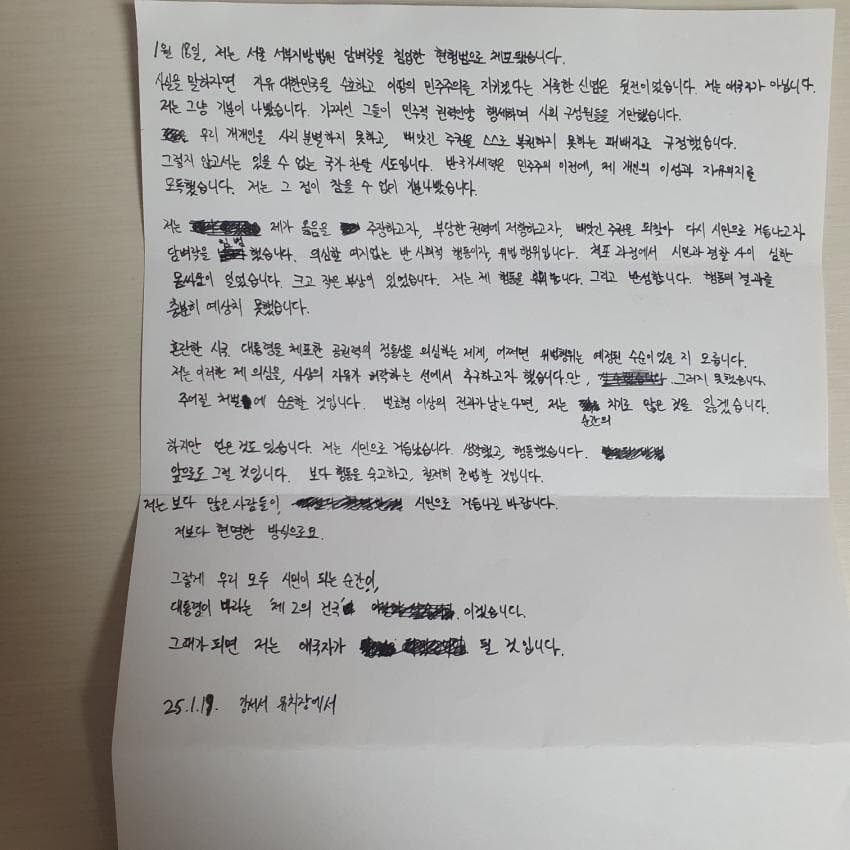 1월 18일, 저는 서울 서부지방법원 담벼락을 침입한 현행범으로 체포됐습니다.
사실을 말하자면 자유 대한민국을 수호하고 이땅의 민주주의를 지키겠다는 거룩한 신념은 뒷전이었습니다. 저는 애국자가 아닙니다.
저는 그냥 기분이 나빴습니다. 가짜인 그들이 민주적 권력인양 행세하며 사회 구성원들을 기만했습니다.
우리 개개인을 사리 분별하지 못하고, 빼앗긴 주권을 스스로 복권하지 못하는 패배자로 규정했습니다.
그렇지 않고서는 있을 수 없는 국가 찬탈 시도입니다. 반국가세력은 민주주의 이전에, 제 개인의 이성과 자유의지를
모독했습니다. 저는 그 점이 참을 수 없이 기분나빴습니다.
저는 제가 옳음을 주장하고자, 부당한 권력에 저항하고자, 빼앗긴 주권을 되찾아 다시 시민으로 거듭나고자
담벼락을 월담 했습니다. 의심할 여지없는 반 사회적 행동이자, 위법 행위입니다. 체포 과정에서 시민과 경찰 사이 심한
몸싸움이 일었습니다. 크고 작은 부상이 있었습니다. 저는 제 행동을 합니다. 그리고 반성합니다. 행동의 결과를
충분히 예상치 못했습니다.
혼란한 시국. 대통령을 체포한 공권력의 정통성을 의심하는 제게, 어쩌면 위법행위는 예정된 수순이었을 지 모릅니다.
저는 이러한 제 의심을, 사상의 자유가 허락하는 선에서 추구하고자 했습니다.만, 그러지 못했습니다.
주어질 처벌에 순응할 것입니다. 벌금형 이상의 전과가 남는다면, 저는 순간의 치기로 많은 것을 잃겠습니다.
하지만 얻은 것도 있습니다. 저는 시민으로 거듭났습니다. 생각했고, 행동했습니다.
앞으로도 그럴 것입니다. 보다 행동을 숙고하고, 철저히 준법할 것입니다.
저는 보다 많은 사람들이, 시민으로 거듭나길 바랍니다.
저보다 현명한 방식으로요.
그렇게 우리 모두 시민이 되는 순간이,
대통령이 바라는 '제 2의 건국' 이겠습니다.
그때가 되면 저는 애국자가 될 것입니다.
25.1.19. 강서서 유치장에서